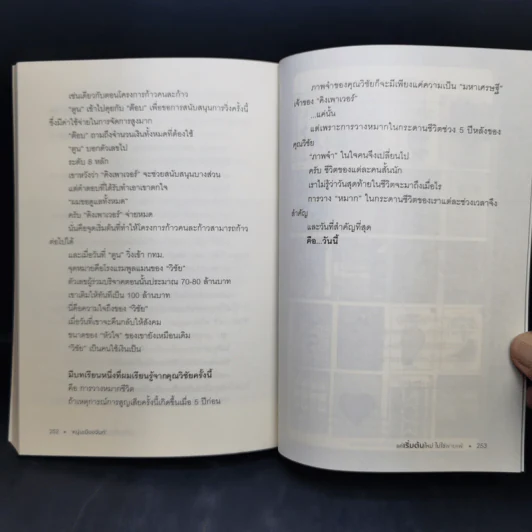 เช่นเดียวกับตอนโครงการก้าวคนละก้าว
"ตูน" เข้าไปคุยกับ "ต๊อบ" เพื่อขอการสนับสนุนการวิ่งครั้งนี้
ซึ่งมีค่าใช้จ่ายในการจัดการสูงมาก
"ต๊อบ" ถามถึงจำนวนเงินทั้งหมดที่ต้องใช้
"ตูน" บอกตัวเลขไป
ระดับ 8 หลัก
เขาหวังว่า "คิงเพาเวอร์" จะช่วยสนับสนุนบางส่วน
แต่คำตอบที่ได้รับทำเอาเขาตกใจ
"ผมขอดูแลทั้งหมด"
ครับ "คิงเพาเวอร์" จ่ายหมด
นั่นคือจุดเริ่มต้นที่ทำให้โครงการก้าวคนละก้าวสามารถก้าว
ต่อไปได้
และเมื่อวันที่ "ตูน" วิ่งเข้า กทม.
จุดหมายคือโรงแรมพูลแมนของ "วิชัย"
ตัวเลขผู้ร่วมบริจาคตอนนั้นประมาณ 70-80 ล้านบาท
เขาเติมให้ทันทีเป็น 100 ล้านบาท
นี่คือความใจถึงของ "วิชัย"
เมื่อวันที่เขาจะคืนกลับให้สังคม
ขนาดของ "หัวใจ" ของเขายังเหมือนเดิม
"วิชัย" เป็นคนใช้เงินเป็น
มีบทเรียนหนึ่งที่ผมเรียนรู้จากคุณวิชัยครั้งนี้
คือ การวางหมากชีวิต
ถ้าเหตุการณ์การสูญเสียครั้งนี้เกิดขึ้นเมื่อ 5 ปีก่อน
202 • หนุ่มเมืองจันท์
ภาพจำของคุณวิชัยก็จะมีเพียงแต่ความเป็น "มหาเศรษฐี"
เจ้าของ "คิงเพาเวอร์"
...แค่นั้น
แต่เพราะการวางหมากในกระดานชีวิตช่วง 5 ปีหลังของ
คุณวิชัย
"ภาพจำ" ในใจคนจึงเปลี่ยนไป
ครับ ชีวิตของแต่ละคนสั้นนัก
เราไม่รู้ว่าวันสุดท้ายในชีวิตจะมาถึงเมื่อไร
การวาง "หมาก" ในกระดานชีวิตของเราแต่ละช่วงเวลาจึง
สำคัญ
และวันที่สำคัญที่สุด
คือ...วันนี้
แค่เริ่มต้นใหม่ ไม่ใช่ • 203